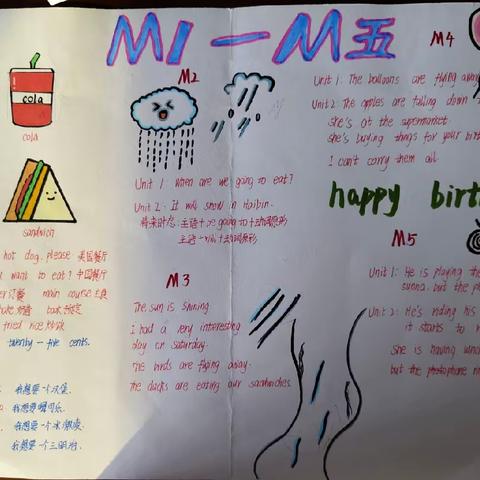 M1一M五
cola
cola
sandwich
hot dog, please 美国餐厅
want to eat? 中国餐厅
main course 主食
fried rice 炒饭
twenty-five cents.
我想要一个汉堡.
我想要喝可乐.
我想要一个冰激凌.
我想要一个三明治.
M2
Unit 1 when are we going to eat?
Unit 2: It will snow in Harbin.
将来时态: 主语+be going to +动词原形
主语+will+动词原形
M3
The sun is shining
I had a very interesting
day on saturday.
The birds are flying away.
The ducks are eating our sandwiches.
M4
Unit 1: The balloons are flying away
Unit 2: The apples are falling down
She's at the supermarket.
She's buying things for your birt
I can't carry them all
happy birt
M5
Unit 1: He is playing the
suona, but the p
Unit 2: He's riding his
it starts to r
She is having lunc
but the